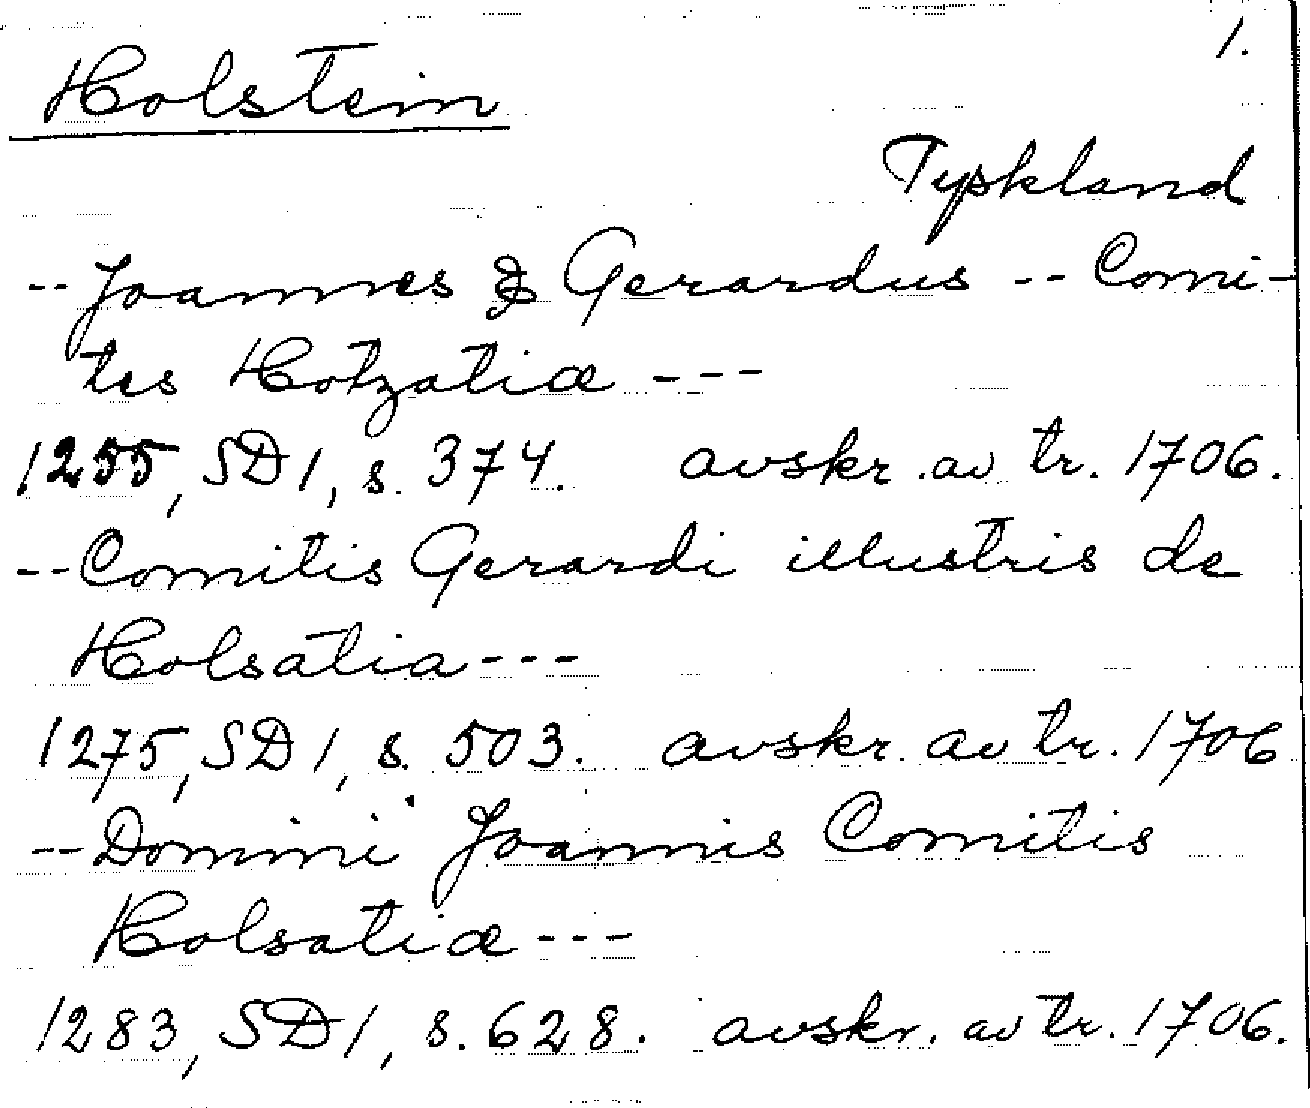 1.
Holstein
Tyskland
-- Joannes & Gerardus -- Comi-
tes Holzatiæ ---
1255, SD 1, s. 374. avskr. av tr. 1706.
-- Comitis Gerardi illustris de
Holsatia ---
1275, SD 1, s. 503. avskr. av tr. 1706
-- Domini Joannis Comitis
Holsatiæ ---
1283, SD 1, s. 628. avskr. av tr. 1706.